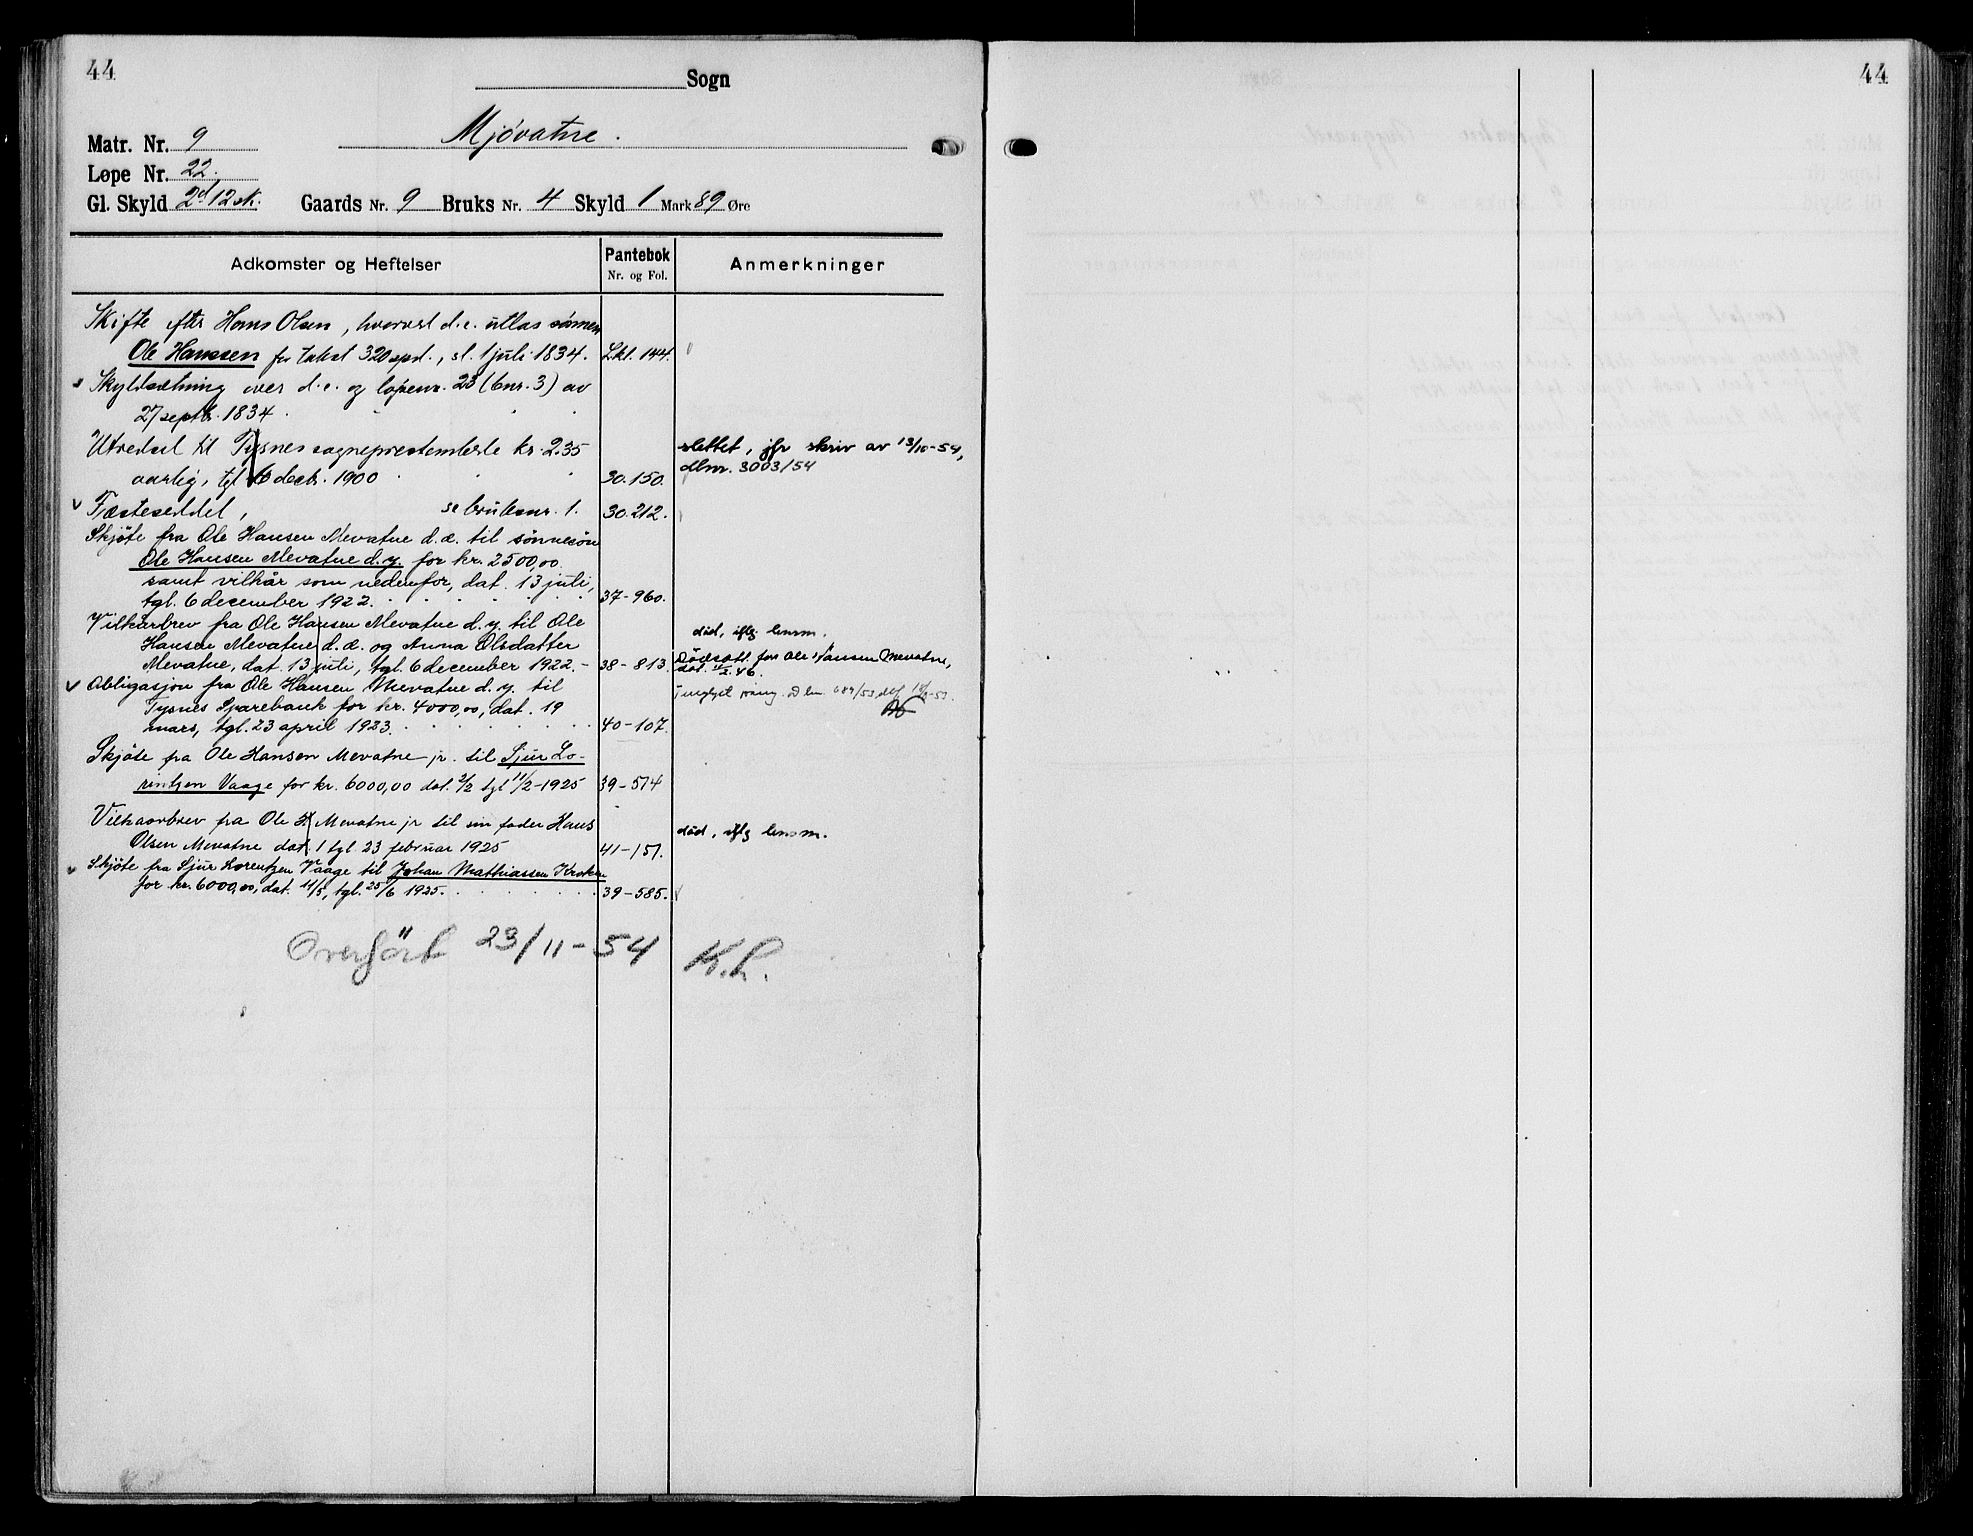 44
Sogn
44
Mjövatne.
Matr. Nr. 9
Løpe Nr. 22.
Gl. Skyld 2d 12 sk. Gaards Nr. 9 Bruks Nr. 4 Skyld 1 Mark 89 Øre
Adkomster og Heftelser
Pantebok
Nr. og Fol.
Anmerkninger
Skifte efter Hans Olsen, hvorved d.e. utlas sönnen
Ole Hanssen for takst 320 spd., sl. 1 juli 1834. Lkl. 144.
Skyldsætning over d.e. og löpenr. 23 (bnr. 3) av
27 septb. 1834.
Utredsel til Tysnes sogneprestembede kr. 2.35
aarlig, tgl 6 decb. 1900 30.150.
slettet, jfr skriv av 13/10-54,
dbnr. 3003/54
Fæsteseddel, se bruksnr. 1. 30.212.
Skjöte fra Ole Hansen Mevatne d.æ. til sönnesön
Ole Hansen Mevatne d.y. for kr. 2500,00
samt vilkår som nedenfor, dat. 13 juli,
tgl. 6 december 1922. 37-960.
Vilkårbrev fra Ole Hansen Mevatne d.y. til Ole
Hansen Mevatne d.æ. og Anna Olsdatter
Mevatne, dat. 13 juli, tgl. 6 december 1922.- 38-813.
död, iflg lensm.
Dödsatt. for Ole Hansen Mevatne,
Obligasjon fra Ole Hansen Mevatne d.y. til
Tysnes Sparebank for kr. 4000,00, dat. 19
mars, tgl. 23 april 1923. 40-107.
Skjöte fra Ole Hansen Mevatne jr. til Sjur Lo-
rentzen Vaage for kr. 6000,00 dat. 2/2 tgl 11/2-1925 39-574
Vilkaarbrev fra Ole H. Mevatne jr til sin fader Hans
Olsen Mevatne dat. 1 tgl 23 februar 1925 41-151.
död, iflg lensm.
Skjöte fra Sjur Lorentzen Vaage til Johan Mathiassen Kroken
for kr. 6000,00, dat. 11/5, tgl. 25/6 1925. 39-585.
Overfört 23/11-54 K.L.